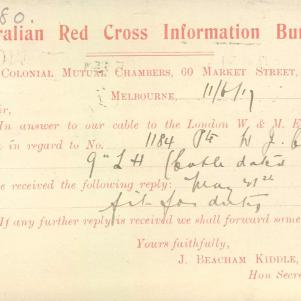 80.
ralian Red Cross Information Bur
Colonial Mutual Chambers, 60 Market Street,
Melbourne, 11/6/17
ir,
In answer to our cable to the London W. & M. E
in regard to No. 1184 Pte W J
9th L H (Cable dated
e received the following reply: May 31st
fit for duty
If any further reply is received we shall forward same
Yours faithfully,
J. BEACHAM KIDDLE,
Hon Secre